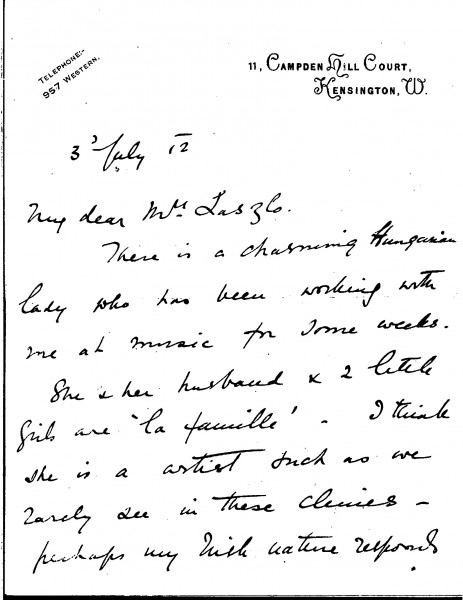 Telephone:-
957 Western.
11, Campden Hill Court,
Kensington, W.
3d July 12
My dear Mrs Laszlo.
There is a charming Hungarian
lady who has been working with
me at music for some weeks.
She & her husband & 2 little
girls are 'la famille' - I think
she is a artist such as we
rarely see in these climes -
perhaps my Irish nature responds